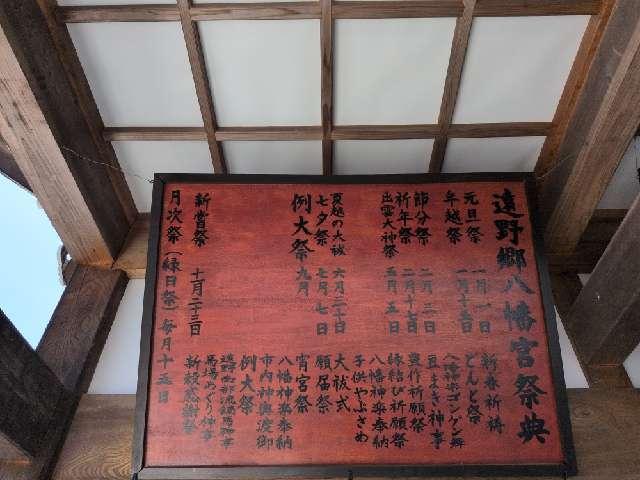 遠野郷八幡宮祭典
元旦祭 一月一日 新春祈祷
年越祭 一月十五日 どんと祭
八幡神楽ゴンゲン舞
節分祭 二月三日 豆まき神事
祈年祭 二月十七日 農作祈願祭
出雲大神祭 五月五日 縁結び祈願祭
八幡神楽奉納
子供やぶさめ
夏越の大祓 六月三十日 大祓式
七夕祭 七月七日 願届祭
例大祭 九月 宵宮祭
八幡神楽奉納
市内神輿渡御
例大祭
遠野南部流鏑馬神事
馬場めぐり神事
新嘗祭 十一月二十三日 新穀感謝祭
月次祭(縁日祭)毎月十五日